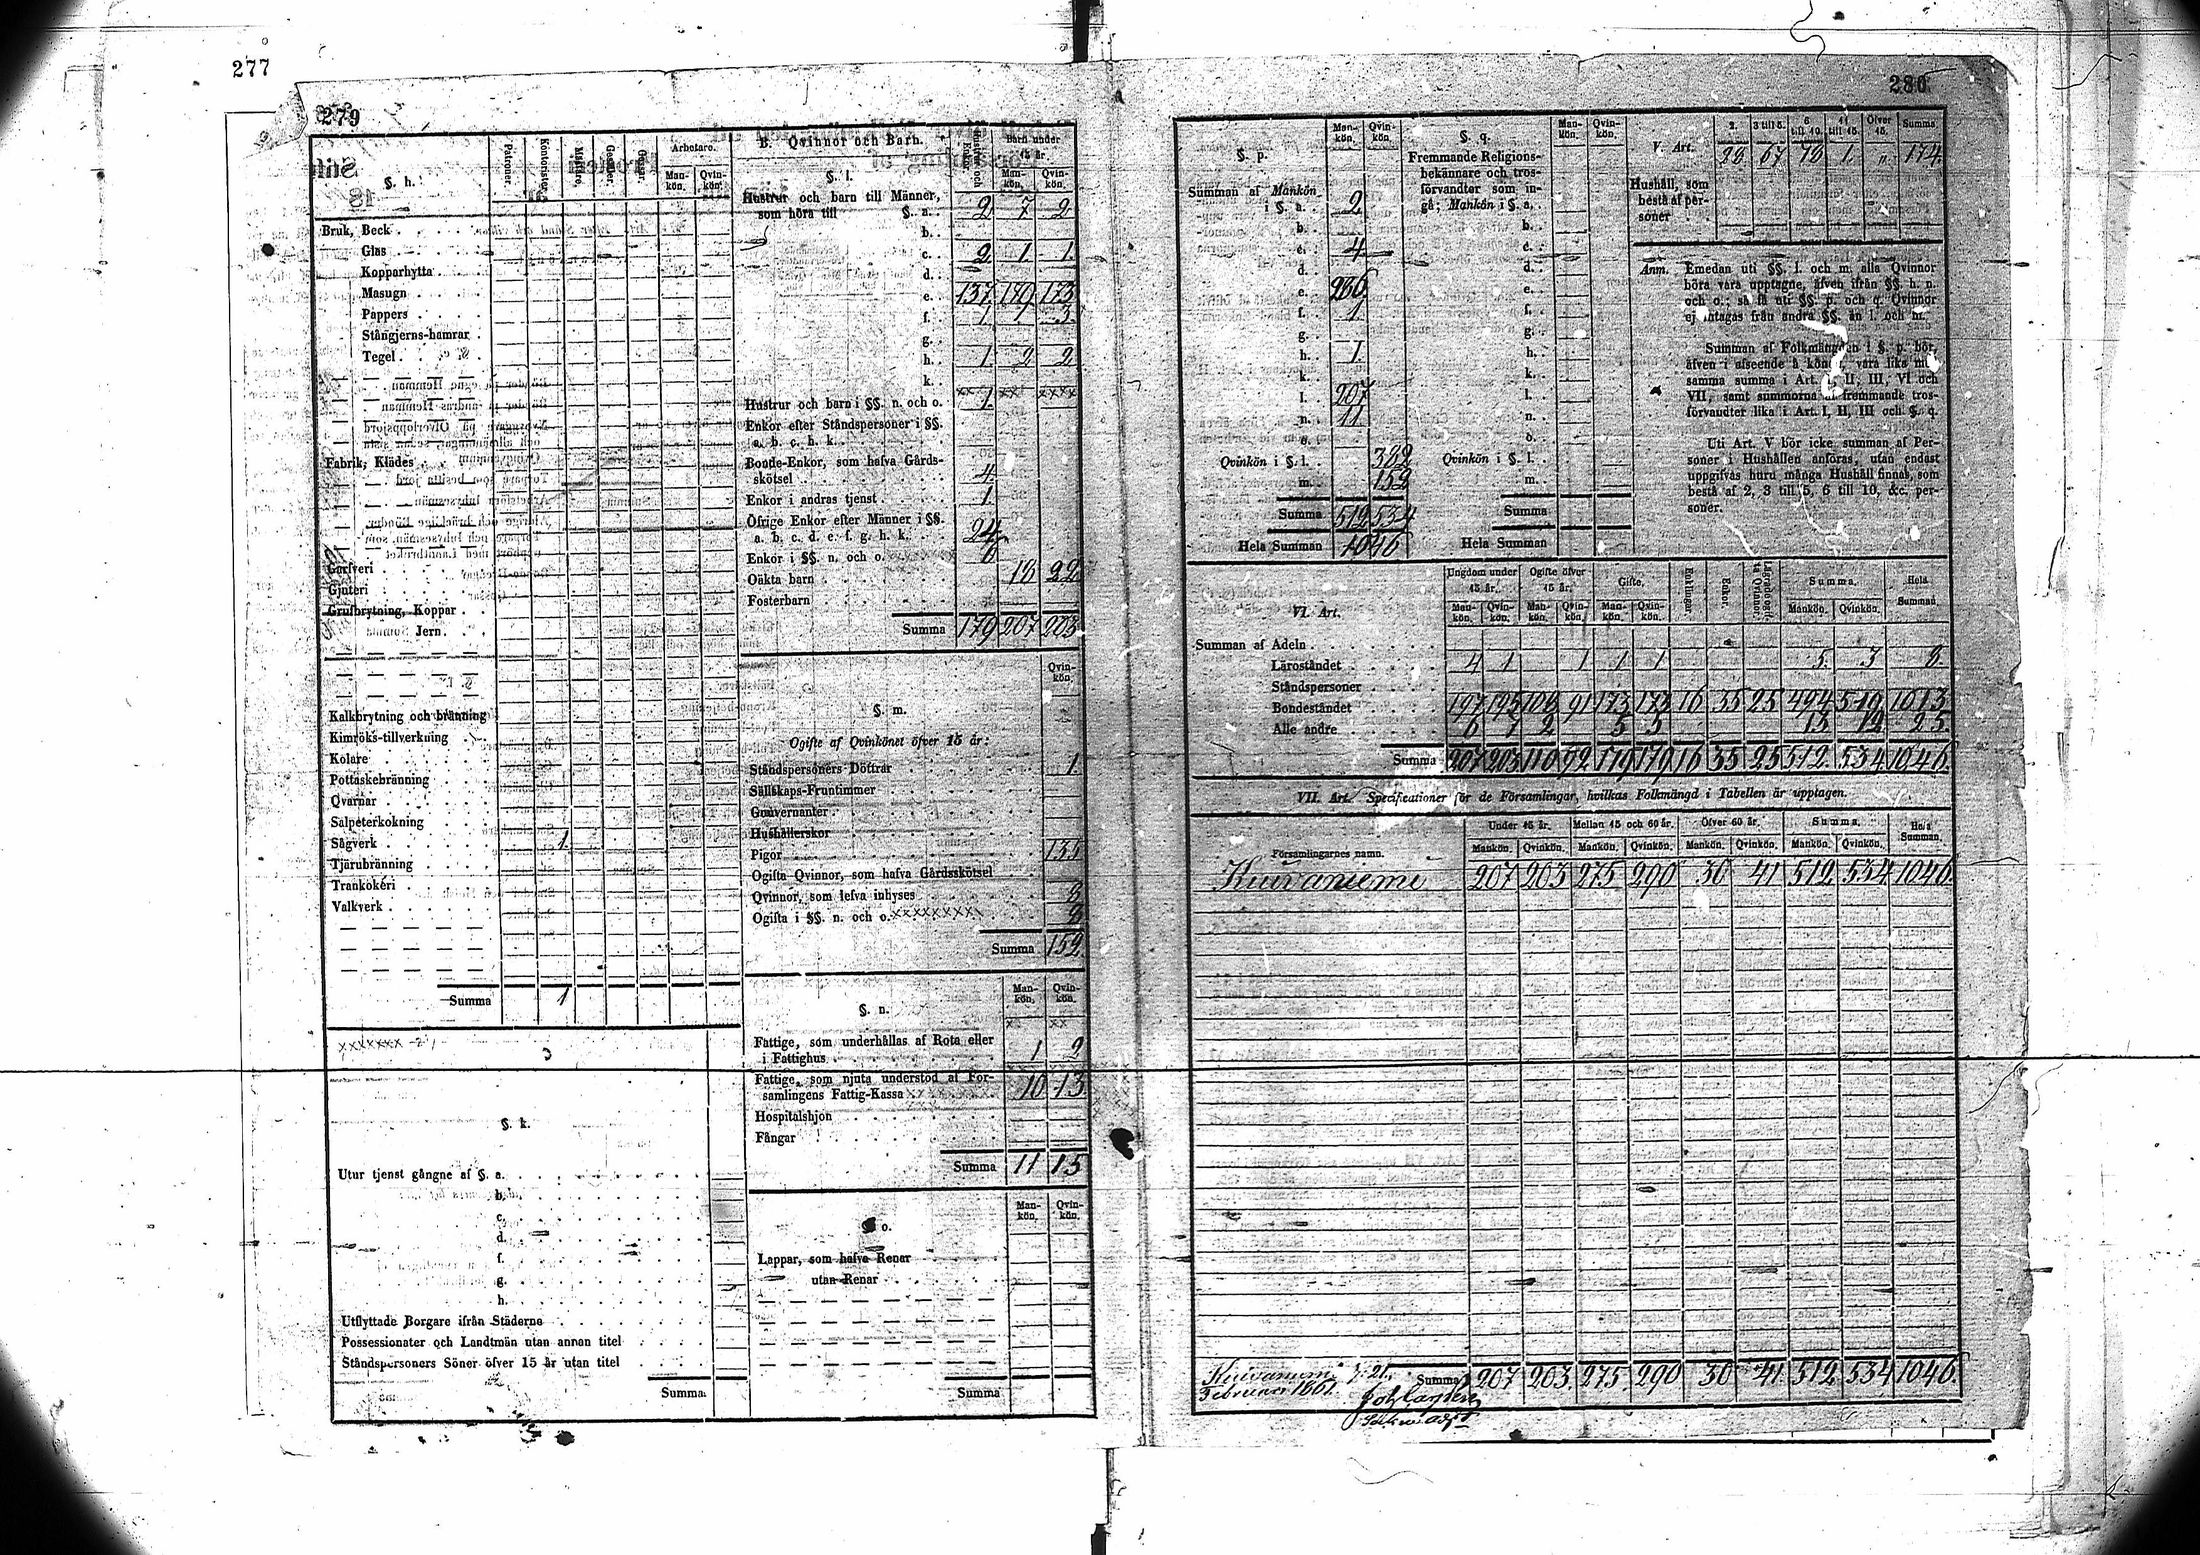 277
279
280
§. h.
Patroner.
Kontorister.
Mästare.
Gesäller.
Arbetare.
Mankön.
Qvinkön.
Bruk, Beck
Glas
Kopparhytta
Masugn
Pappers
Stångjerns-hamrar
Tegel
Fabrik, Klädes
Garfveri
Gjuteri
Grufbrytning, Koppar
Jern
Kalkbrytning och bränning
Kimröks-tillverkning
Kolare
Pottaskebränning
Qvarnar
Salpeterkokning
Sågverk 1.
Tjärubränning
Trankokeri
Valkverk
Summa 1
§. k.
Utur tjenst gångne af §. a.
b.
c.
d.
f.
g.
h.
Utflyttade Borgare ifrån Städerne
Possessionater och Landtmän utan annan titel
Ståndspersoners Söner öfver 15 år utan titel
Summa
B. Qvinnor och Barn.
Hustrur och Enkor.
Barn under 15 år.
Mankön.
Qvinkön.
§. l.
Hustrur och barn till Männer,
som höra till §. a. 2 7 2
b.
c. 2. 1. 1.
d.
e. 137. 179 173
f. 1. 3.
g.
h. 1. 2 2
k.
Hustrur och barn i §§. n. och o. 1.
Enkor efter Ståndspersoner i §§.
a. b. c. h. k.
Bonde-Enkor, som hafva Gårds-
skötsel 4.
Enkor i andras tjenst 1.
Öfrige Enkor efter Männer i §§.
a. b. c. d. e. f. g. h. k. 24
Enkor i §§. n. och o. 6
Oäkta barn 18 22
Fosterbarn
Summa 179 207 203
Qvinkön.
§. m.
Ogifte af Qvinkönet öfver 15 år:
Ståndspersoners Döttrar 1.
Sällskaps-Fruntimmer
Gouvernanter
Hushållerskor
Pigor 135
Ogifta Qvinnor, som hafva Gårdsskötsel
Qvinnor, som lefva inhyses 8
Ogifta i §§. n. och o. 8
Summa 152
Mankön.
Qvinkön.
§. n.
Fattige, som underhållas af Rota eller
i Fattighus 1 2
Fattige, som njuta understöd af För-
samlingens Fattig-Kassa 10 13
Hospitalshjon
Fångar
Summa 11 15
Mankön.
Qvinkön.
§. o.
Lappar, som hafva Renar
utan Renar
Summa
§. p.
Mankön.
Qvinkön.
Summan af Mankön
i §. a. 2
b.
c. 4
d.
e. 286
f. 1
g.
h. 1.
k.
l. 207
n. 11.
o.
Qvinkön i §. l. 382
m. 152
Summa 512 534
Hela Summan 1046
§. q.
Mankön.
Qvinkön.
Fremmande Religions-
bekännare och tros-
förvandter som in-
gå; Mankön i §. a.
b.
c.
d.
e.
f.
g.
h.
k.
l.
n.
o.
Qvinkön i §. l.
m.
Summa
Hela Summan
V. Art.
2. 3 till 5. 6 till 10. 11 till 15. Öfver 15. Summa
28 67 78 1. " 174.
Hushåll, som
bestå af per-
soner
Anm. Emedan uti §§. l. och m. alla Qvinnor
böra vara upptagne, äfven ifrån §§. h. n.
och o.; så få uti §§. p. och q. Qvinnor
ej intagas från andra §§. än l. och m.
Summan af Folkmängden i §. p. bör,
äfven i afseende å könen, vara lika med
samma summa i Art. II, III, VI och
VII, samt summorna af fremmande tros-
förvandter lika i Art. I, II, III och §. q.
Uti Art. V bör icke summan af Per-
soner i Hushållen anföras, utan endast
uppgifvas huru många Hushåll finnas, som
bestå af 2, 3 till 5, 6 till 10, &c. per-
soner.
VI. Art.
Ungdom under 15 år. Ogifte öfver 15 år. Gifte. Enklingar. Enkor. Summa. Hela Summan.
Mankön. Qvinkön. Mankön. Qvinkön. Mankön. Qvinkön. Mankön. Qvinkön.
Summan af Adeln
Läroståndet 4 1 1 1 1 5. 3 8.
Ståndspersoner
Bondeståndet 197 195 108 91 173 173 16 35 25 494 519 1013
Alle andre 6 7 2 5 5 13 12 25
Summa 207 203 110 92 179 179 16 35 25 512 534 1046
VII. Art. Specificationer för de Församlingar, hvilkas Folkmängd i Tabellen är upptagen.
Församlingarnes namn. Under 15 år. Mellan 15 och 60 år. Öfver 60 år. Summa. Hela Summan.
Mankön. Qvinkön. Mankön. Qvinkön. Mankön. Qvinkön. Mankön. Qvinkön.
Kuivaniemi 207 203 275 290 30 41 512 534 1046
Summa 207 203 275 290 30 41 512 534 1046
Kuivaniemi d. 21.
Februari 1861.